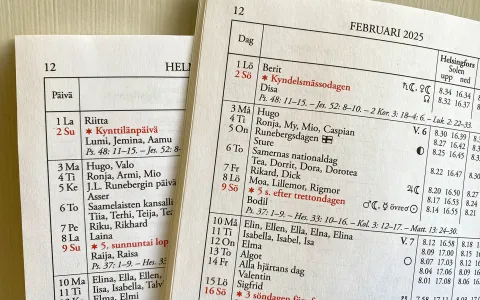 12
HEL
Päivä
1 La Riitta
2 Su ✶ Kynttilänpäivä
Lumi, Jemina, Aamu
Ps. 48: 11–15. – Jes. 52: 8
3 Ma Hugo, Valo
4 Ti Ronja, Armi, Mio
5 Ke J.L. Runebergin päivä
Asser
6 To Saamelaisten kansalli
Tiia, Terhi, Teija, Tea
7 Pe Riku, Rikhard
8 La Laina
9 Su ✶ 5. sunnuntai lop
Raija, Raisa
Ps. 37: 1–9. – Hes. 33:
10 Ma Elina, Ella, Ellen,
11 Ti Isabella, Isabel,
12 Ke Elma, Elmi
12
FEBRUARI 2025
Dag
Helsingfors
Solen
upp ned
1 Lö Berit 8.34 16.34
2 Sö ✶ Kyndelsmässodagen 8.32 16.37
Disa
Ps. 48: 11–15. – Jes. 52: 8–10. – 2 Kor. 3: 18–4: 6. – Luk. 2: 22–33.
3 Må Hugo V. 6 8.30 16.39
4 Ti Ronja, My, Mio, Caspian 8.27 16.42
5 On Runebergsdagen 8.25 16.45
Sture
6 To Samernas nationaldag 8.22 16.47
Tea, Dorrit, Dora, Dorotea
7 Fr Rikard, Dick 8.20 16.50
8 Lö Moa, Lillemor, Rigmor 8.17 16.53
9 Sö ✶ 5 s. efter trettondagen 8.14 16.55
Bodil
Ps. 37: 1–9. – Hes. 33: 10–16. – Kol. 3: 12–17. – Matt. 13: 24–30.
10 Må Elin, Ellen, Ella, Elna, Elina V. 7 8.12 16.58
11 Ti Isabella, Isabel, Isa 8.09 17.01
12 On Elma 8.07 17.03
13 To Algot 8.04 17.06
14 Fr Alla hjärtans dag
Valentin
15 Lö Sigfrid
16 Sö ✶ 3 söndagen